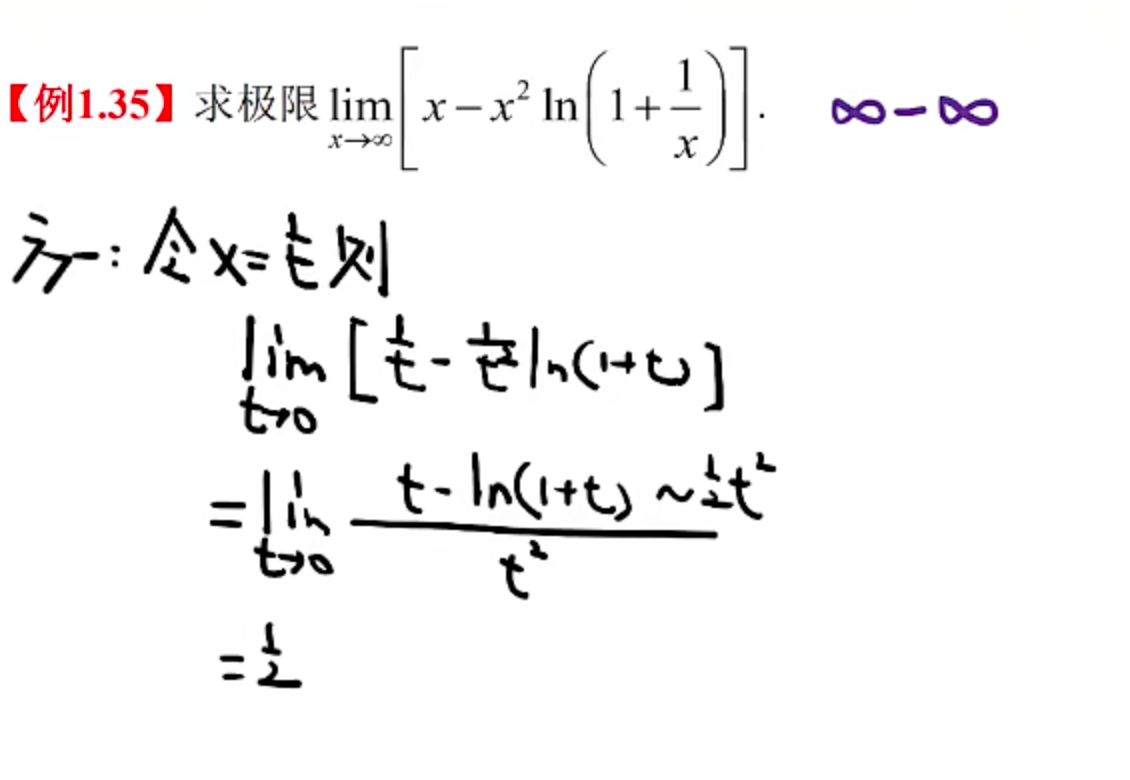 【例1.35】求极限 lim x→∞ [x − x² ln(1 + 1/x)]. ∞ − ∞
方一: 令 x = 1/t 则
lim t→0 [1/t − 1/t² ln(1+t)]
= lim t→0 (t − ln(1+t) ~ 1/2 t²) / t²
= 1/2